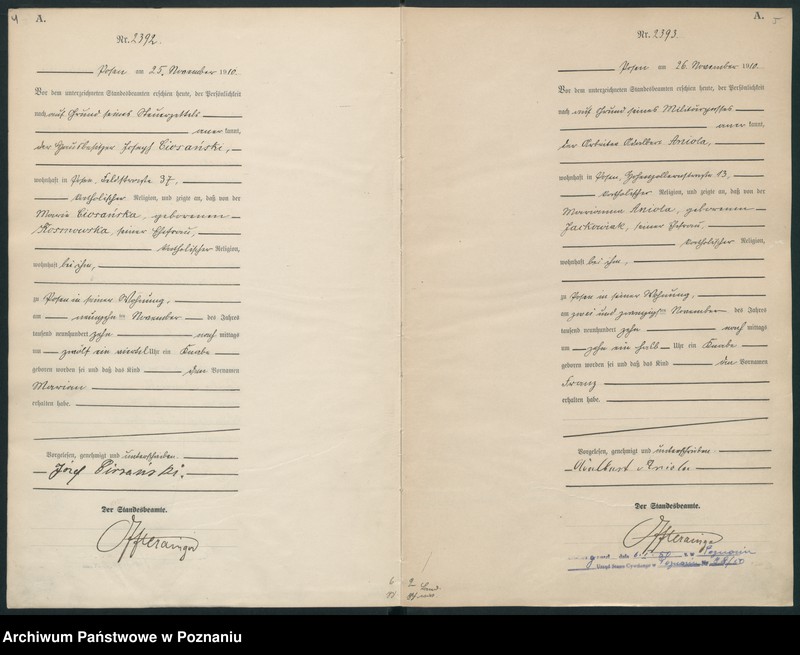 4
A.
Nr. 2392.
Posen am 25. November 1910
Vor dem unterzeichneten Standesbeamten erschien heute, der Persönlichkeit
nach auf Grund seines Steuerzettels
anerkannt,
der Hausbesitzer Joseph
wohnhaft in Posen, Feldstraße 37,
katholischer Religion, und zeigte an, daß von der
Maria geborenen
Kosmowska, seiner Ehefrau,
katholischer Religion,
wohnhaft bei ihm,
zu Posen in seiner Wohnung,
am neunzehnten November des Jahres
tausend neunhundert zehn nach mittags
um zwölf ein viertel Uhr ein Knabe
geboren worden sei und daß das Kind den Vornamen
Marian
erhalten habe.
Vorgelesen, genehmigt und unterschrieben
Józef
Der Standesbeamte.
A.
5
Nr. 2393
Posen am 26. November 1910
Vor dem unterzeichneten Standesbeamten erschien heute, der Persönlichkeit
nach auf Grund seines Militärpasses
anerkannt,
der Arbeiter Adalbert Aniola,
wohnhaft in Posen, Hohenzollernstraße 13,
katholischer Religion, und zeigte an, daß von der
Marianna Aniola, geborenen
Jackowiak, seiner Ehefrau,
katholischer Religion,
wohnhaft bei ihm,
zu Posen in seiner Wohnung,
am zwei und zwanzigsten November des Jahres
tausend neunhundert zehn nach mittags
um zehn ein halb Uhr ein Knabe
geboren worden sei und daß das Kind den Vornamen
Franz
erhalten habe.
Vorgelesen, genehmigt und unterschrieben
Adalbert Aniola
Der Standesbeamte.
Urząd Stanu Cywilnego w
Archiwum Państwowe w Poznaniu